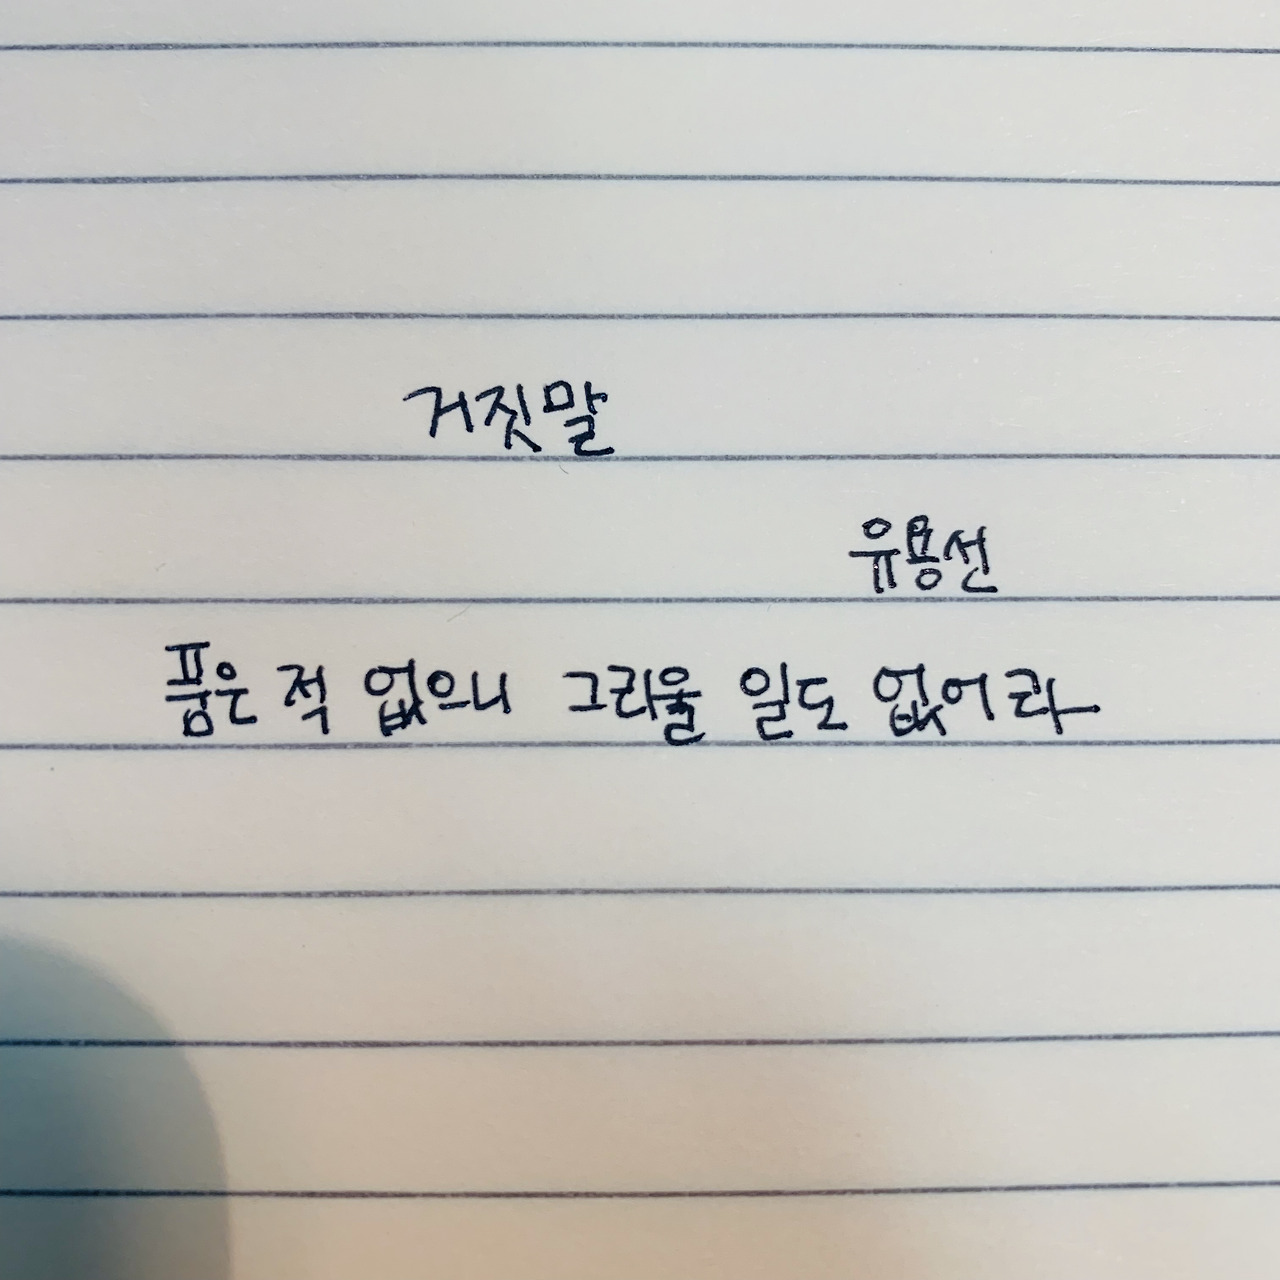 거짓말
유용선
품은 적 없으니 그리울 일도 없어라